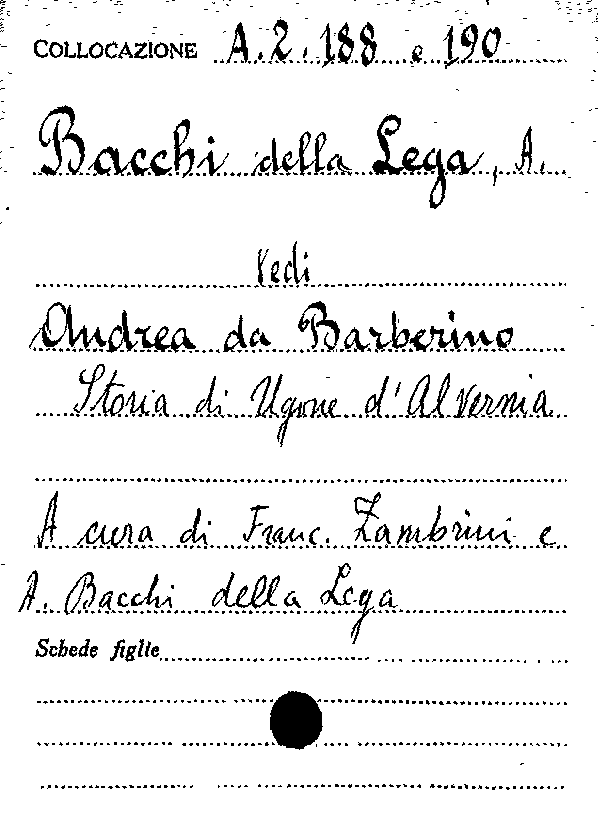 COLLOCAZIONE A.2.188 e 190
Bacchi della Lega, A.
Vedi
Andrea da Barberino
Storia di Ugone d'Alvernia
A cura di Franc. Zambrini e
A. Bacchi della Lega
Schede figlie